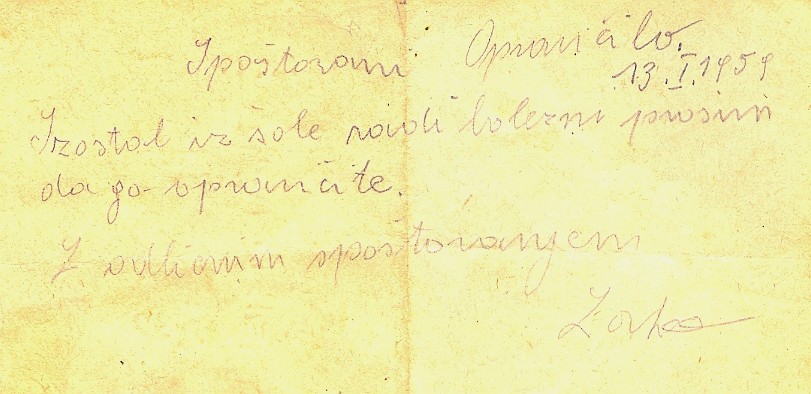 Opravičilo.
Spoštovani 13.I.1959
Izostal iz šole radi bolezni prosim
da go opravičite.
Z odličnim spoštovanjem
Zorka